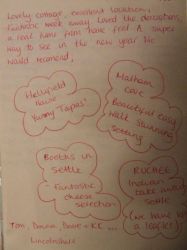 Lovely cottage, excellent location,
fantastic week away. Loved the decorations,
a real home from home feel. A super
way to see in the new year. We
would recommend!
Hellifield
House
Yummy Tapas!
Malham
Cove
Beautiful easy
walk stunning
setting
Booths in
Settle
Fantastic
cheese
selection
RUCHEE
Indian
take away
Settle
(we have left
a leaflet)
Tom, Donna, Dave + K.C ...
Lincolnshire